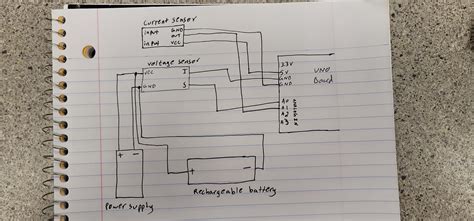 current sensor
input GND
OUT
input VCC
voltage sensor
VCC I
GND S
33V
5V
GND
GND
UNO
Board
A0
A1
A2
A3
+ -
Power supply
+ -
Rechargeable battery